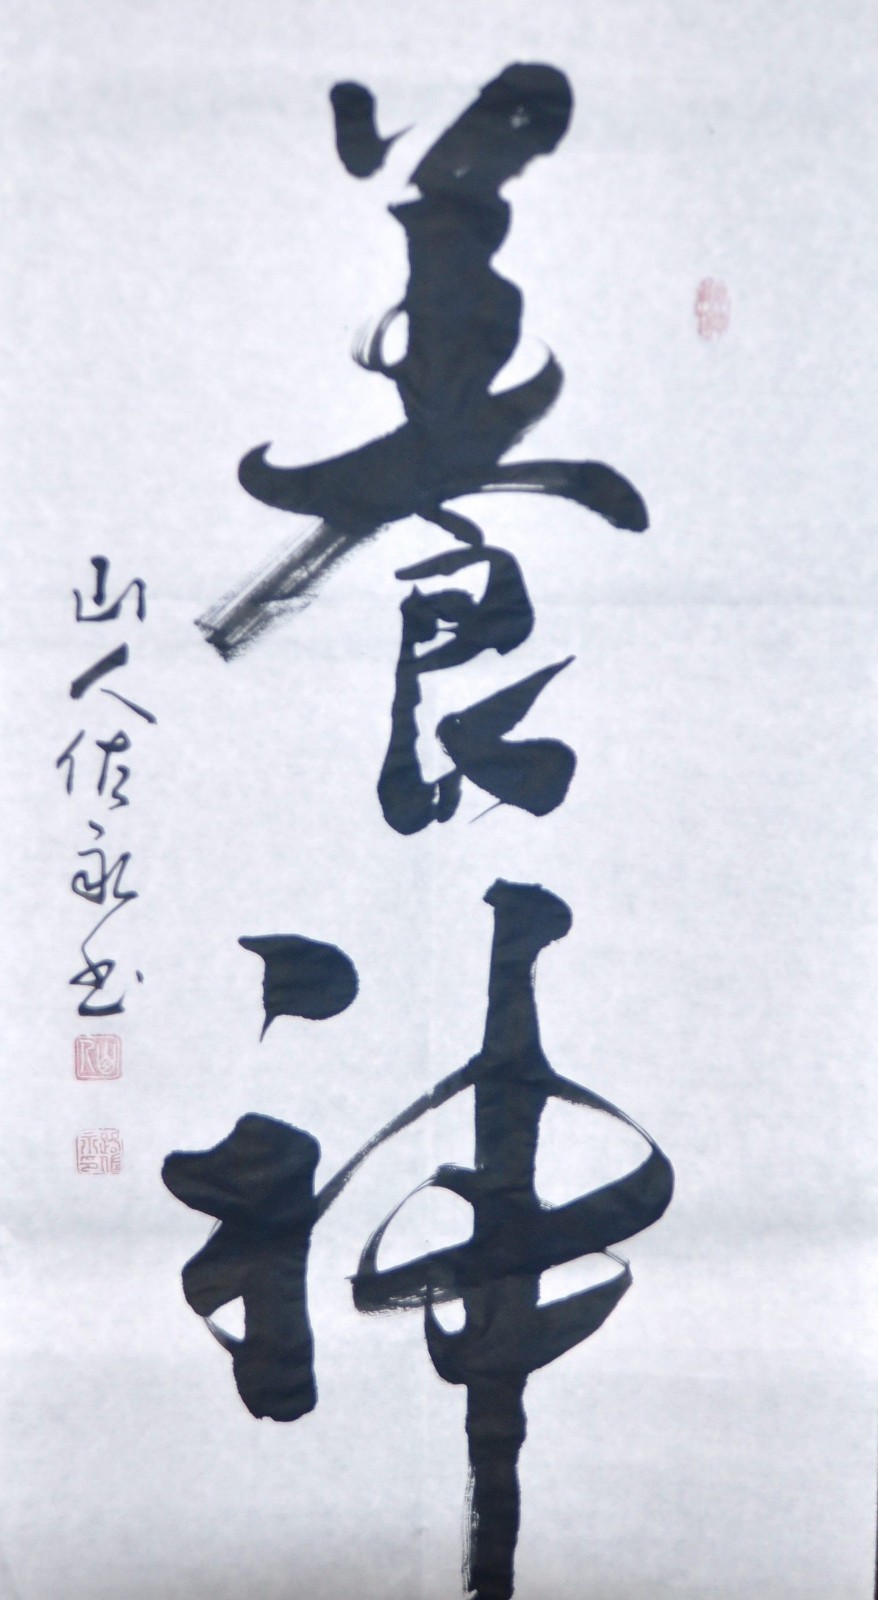 養神
山人佐永书